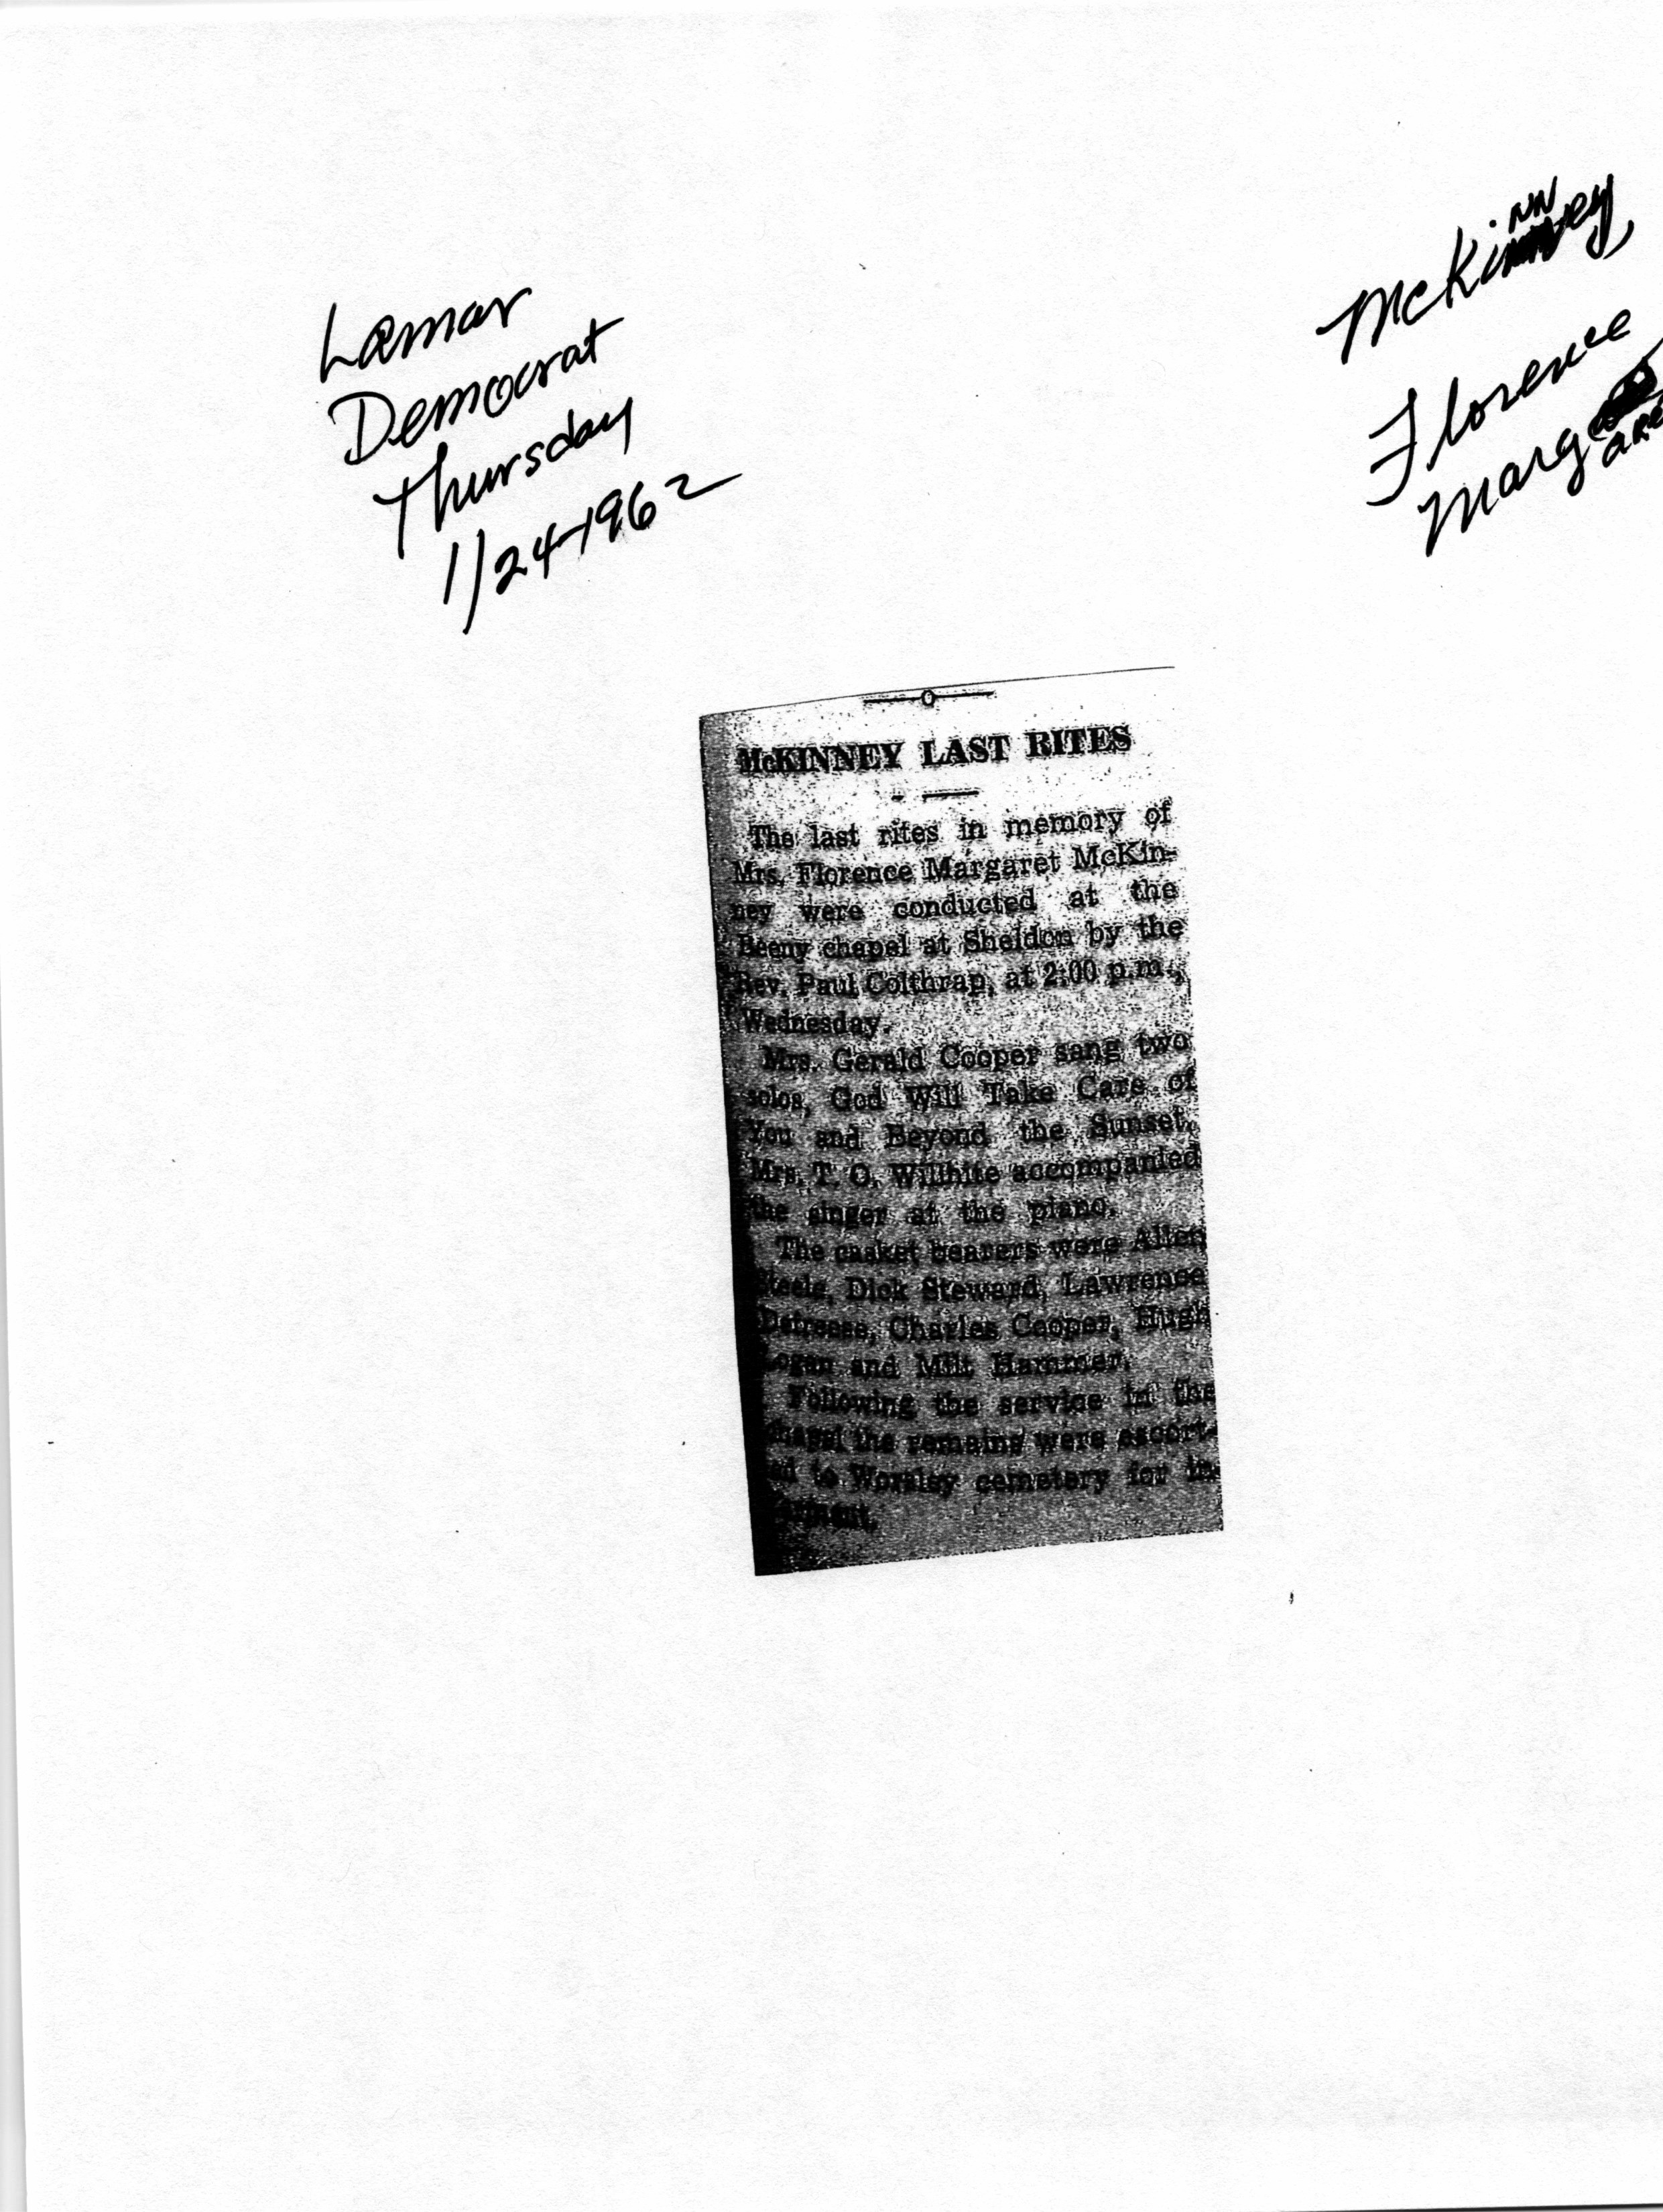 Lamar
Democrat
Thursday
1/24-1962
McKinney
NN
Florence
Marg
are
McKINNEY LAST RITES
The last rites in memory of
Mrs. Florence Margaret McKin-
ney were conducted at the
Beeny chapel at Sheldon by the
Rev. Paul Colthrap, at 2:00 p.m.,
Wednesday.
Mrs. Gerald Cooper sang two
solos, God Will Take Care of
You and Beyond the Sunset.
Mrs. T. O. Willhite accompanied
the singer at the piano.
The casket bearers were Allen
Steele, Dick Steward, Lawrence
Charles Cooper, Hugh
Logan and Milt Hammer.
Following the service in the
chapel the remains were escort-
ed to Worsley cemetery for in-
terment.